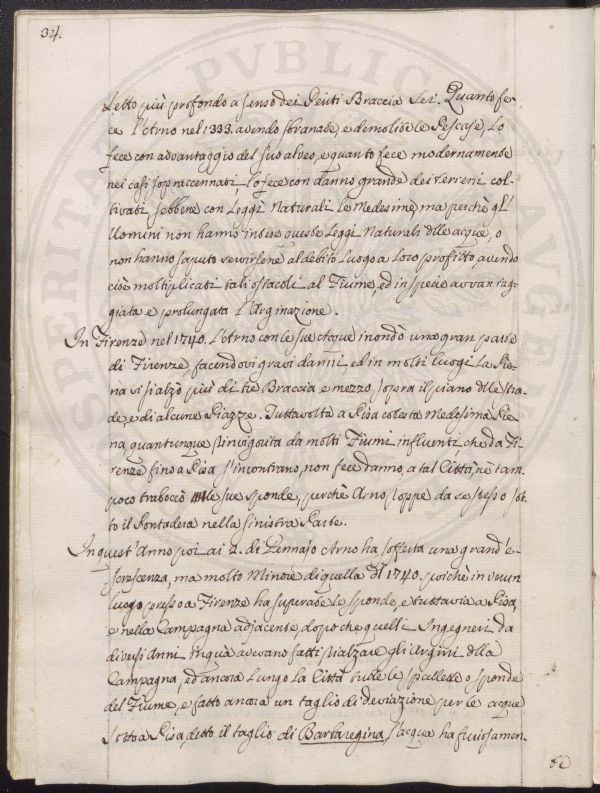 34.
Letto più profondo a senso dei Periti Braccia Sei. Quanto fe-
ce l'Arno nel 1333. avendo sbranate, e demolite le Pescaje, lo
fece con advantaggio del suo alveo, e quanto fece modernamente
nei casi sopraccennati lo fece con danno grande dei terreni col-
tivati sebbene con Leggi Naturali le Medesime, ma perchè gl'
Uomini non hanno intese queste Leggi Naturali dlle acque, o
non hanno saputo servirsene al debito Luogo a Loro profitto, avendo
cioè moltiplicati tali ostacoli al Fiume, ed in specie avvantag-
giata e prolungata l'Arginazione.
In Firenze nel 1740. l'Arno con le sue Acque inondò una gran parte
di Firenze facendovi gravi danni, ed in molti luogi La Pie-
na vi si alzò più di tre Braccia e mezzo sopra il piano dlle stra-
de, e di alcune Piazze. Tuttavolta a Pisa cotesta Medesima Pie-
na, quantunque rinvigorita da molti Fiumi influenti, che da Fi-
renze fino a Pisa s'incontrano, non fece danno, a tal Città, nè tam-
poco traboccò le sue sponde, perchè Arno roppe da se stesso sot-
to il Pontadera nella sinistra Parte.
In quest'Anno poi ai 2. di Gennajo Arno ha sofferta una grand'e-
screscenza, ma molto Minore di quella dl 1740. poichè in verun
luogo presso a Firenze ha superate le sponde, e tuttavia a Pisa,
e nella Campagna adjacente, dopo che quelli Ingegneri da
diversi Anni in quà avevano fatti rialzare gli Argini dlla
Campagna, ed ancora Lungo La Città tutte le spallette o sponde
del Fiume, e fatto ancora un taglio di deviazione per le acque
sotto a Pisa, detto il taglio di Barbaregina, l'acqua ha furiosamen-
te
SPERITAT PVBLICA AVGET